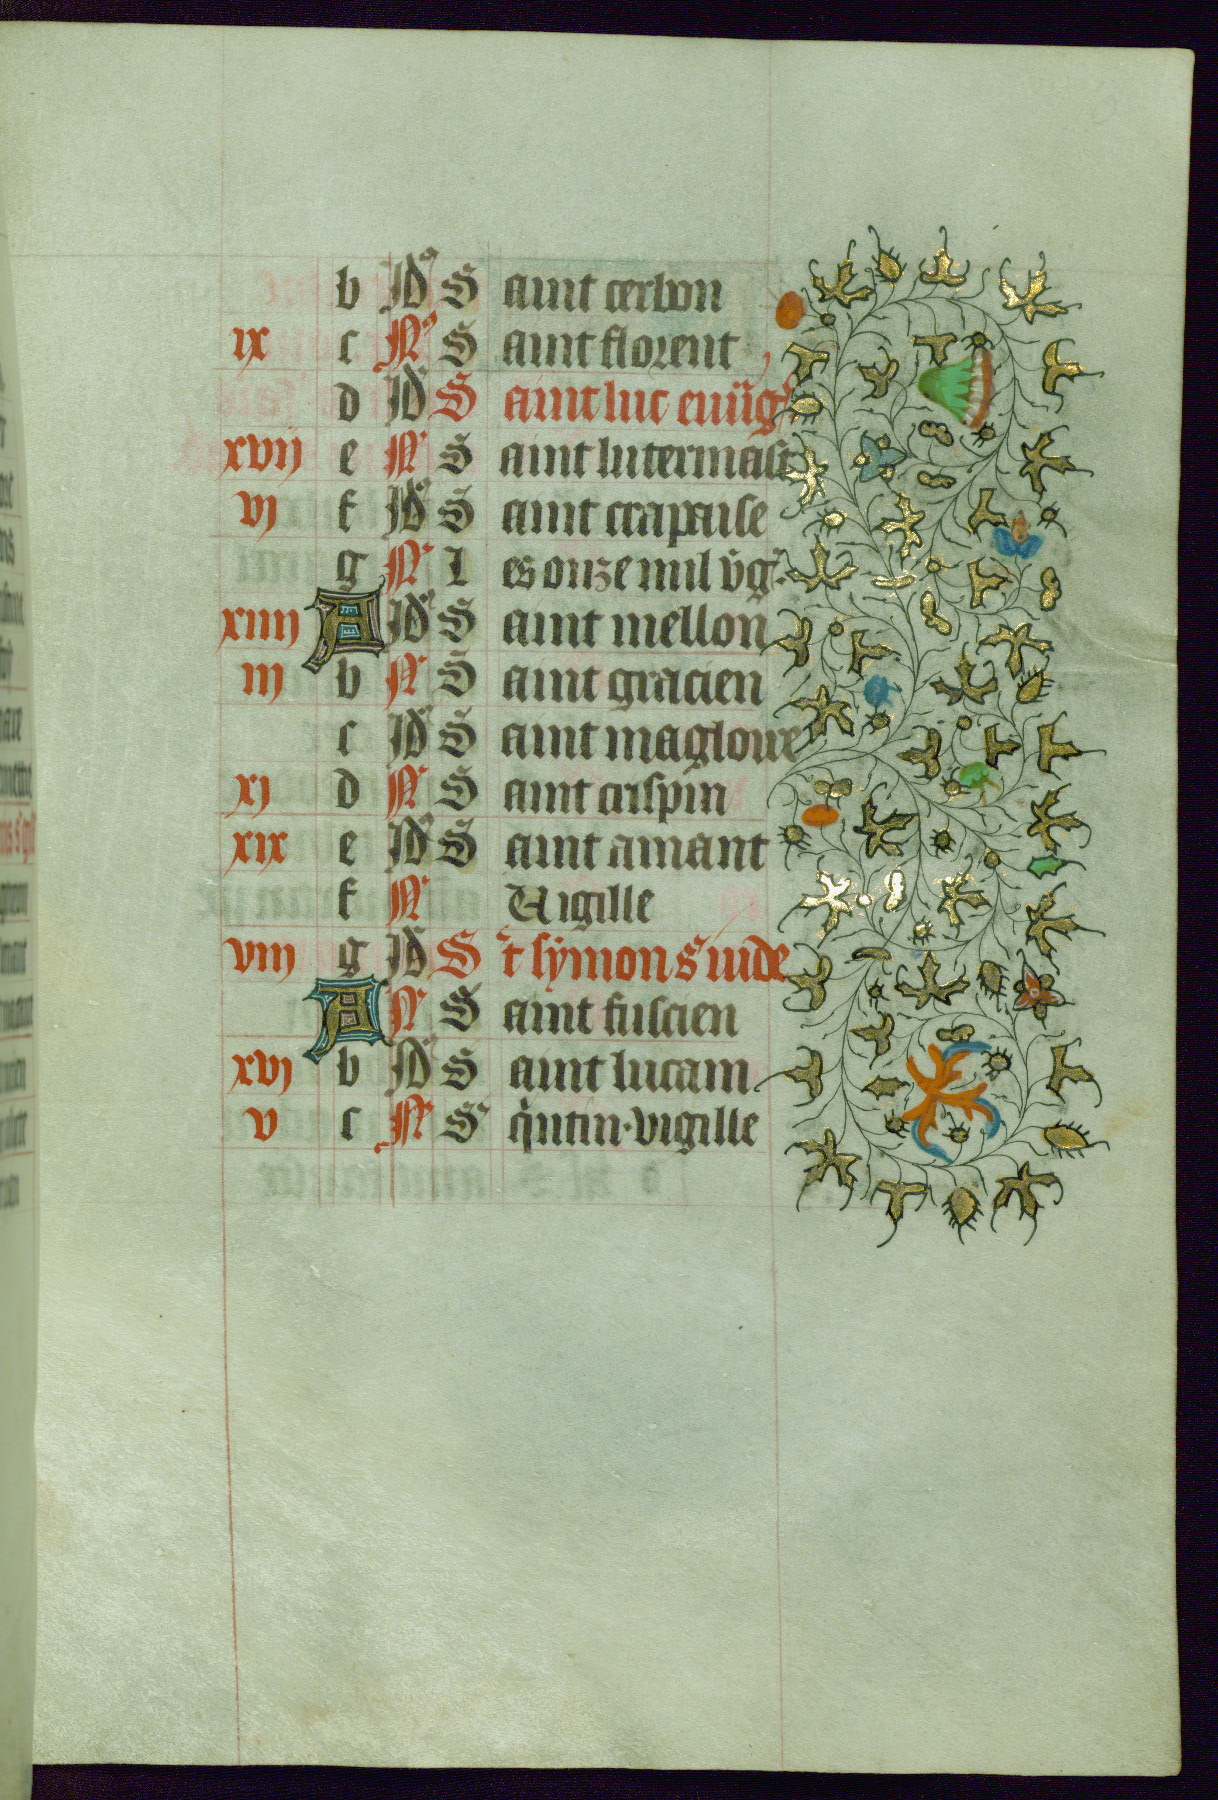 b Id' S aint cerbon
ix c N' S aint florent
d Id' S aint luc euu̅g'
xvij e N' S aint lutermast
vj f Id' S aint crapaise
g N' L es onze mil v̅g'
xiiij A Id' S aint mellon
iij b N' S aint gracien
c Id' S aint magloire
xj d N' S aint crispin
xix e Id' S aint amant
f N' Uigille
viij g Id' S 't symon s' iude
A N' S aint fuscien
xvj b Id' S aint lucain
v c N' S' q̍ntin · vigille